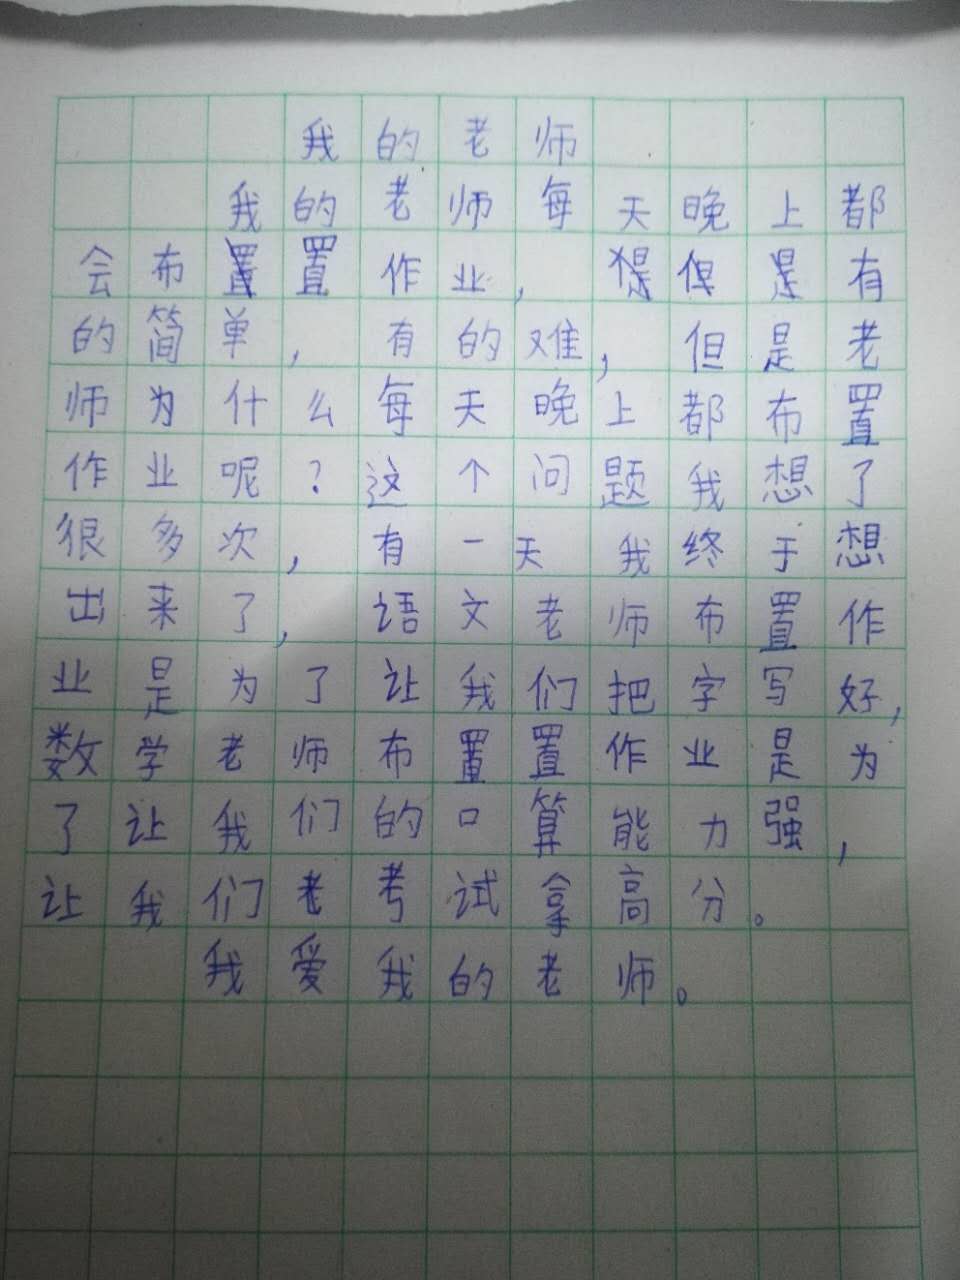 我的老师
我的老师每天晚上都
会布置置作业，猩但是有
的简单，有的难，但是老
师为什么每天晚上都布置
作业呢？这个问题我想了
很多次，有一天我终于想
出来了，语文老师布置作
业是为了让我们把字写好，
数学老师布置置作业是为
了让我们的口算能力强，
让我们老考试拿高分。
我爱我的老师。